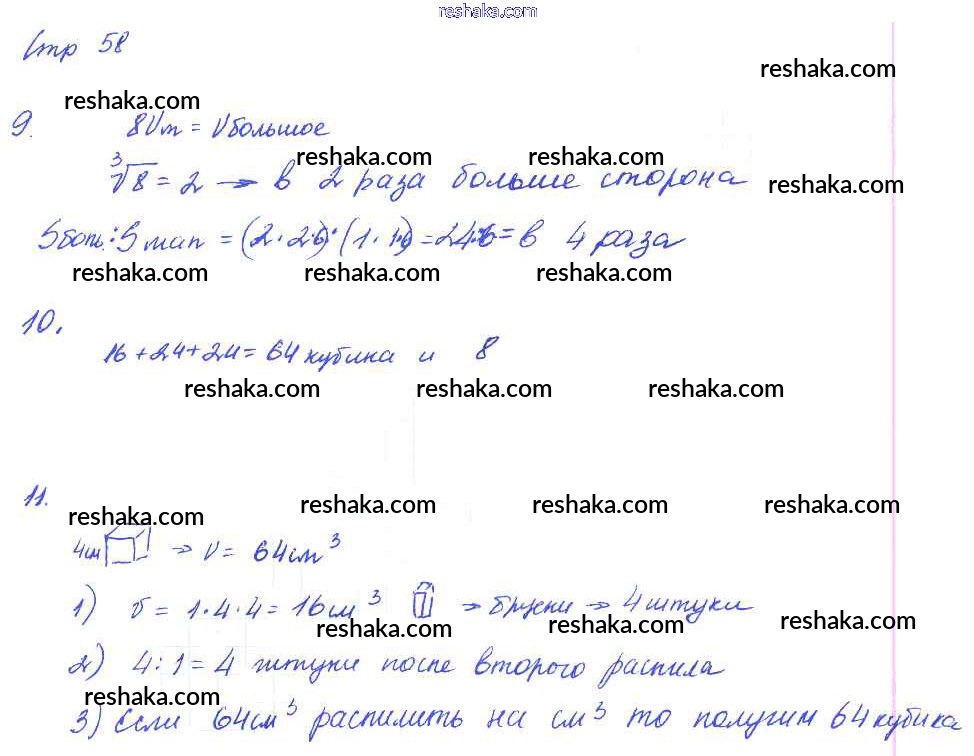 reshaka.com
Стр 58
reshaka.com
reshaka.com
9. 8Vм = Vбольшое
reshaka.com reshaka.com
∛8 = 2 → в 2 раза больше сторона
reshaka.com
Sбольш.: Sмал = (2·2·6):(1·1·6) = 24:6 = в 4 раза
reshaka.com reshaka.com reshaka.com
10.
16+24+24= 64 кубика и 8
reshaka.com reshaka.com reshaka.com
11.
reshaka.com reshaka.com reshaka.com reshaka.com
4см → V = 64см³
1) V = 1·4·4= 16см³ → бруски → 4 штуки
reshaka.com reshaka.com reshaka.com
2) 4:1=4 штуки после второго распила
reshaka.com
3) Если 64см³ распилить на см³ то получим 64 кубика